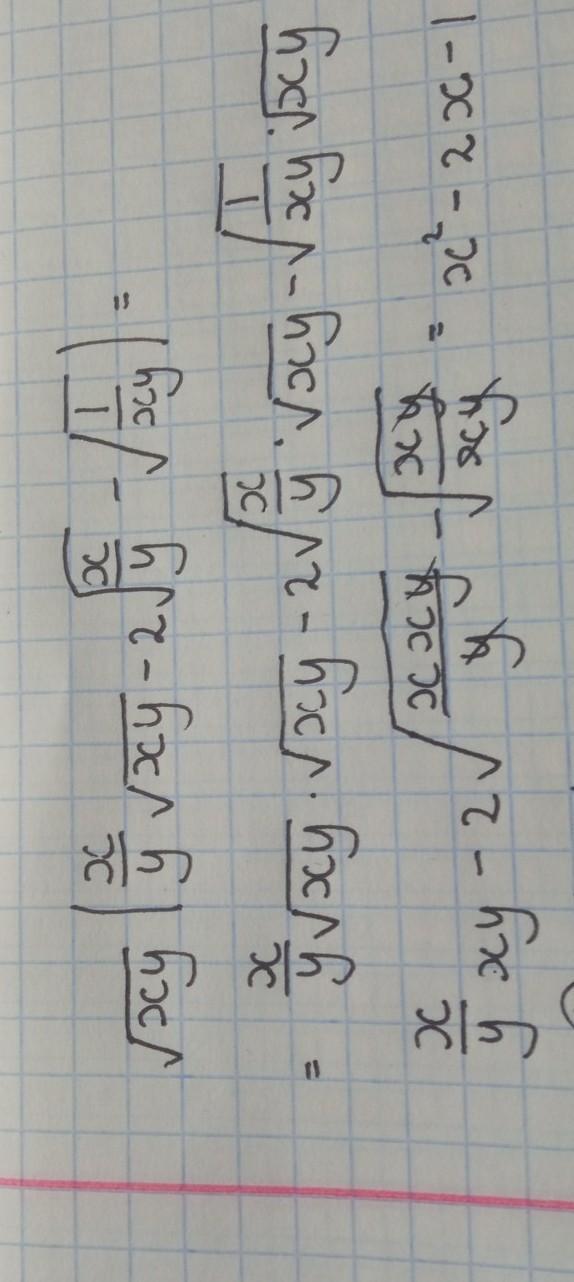 √(xy) (x/y √(xy) - 2√(x/y) - √(1/xy)) =
= x/y √(xy) · √(xy) - 2√(x/y) · √(xy) - √(1/xy) · √(xy)
x/y xy - 2√(xxy/y) - √(xy/xy) = x² - 2x - 1